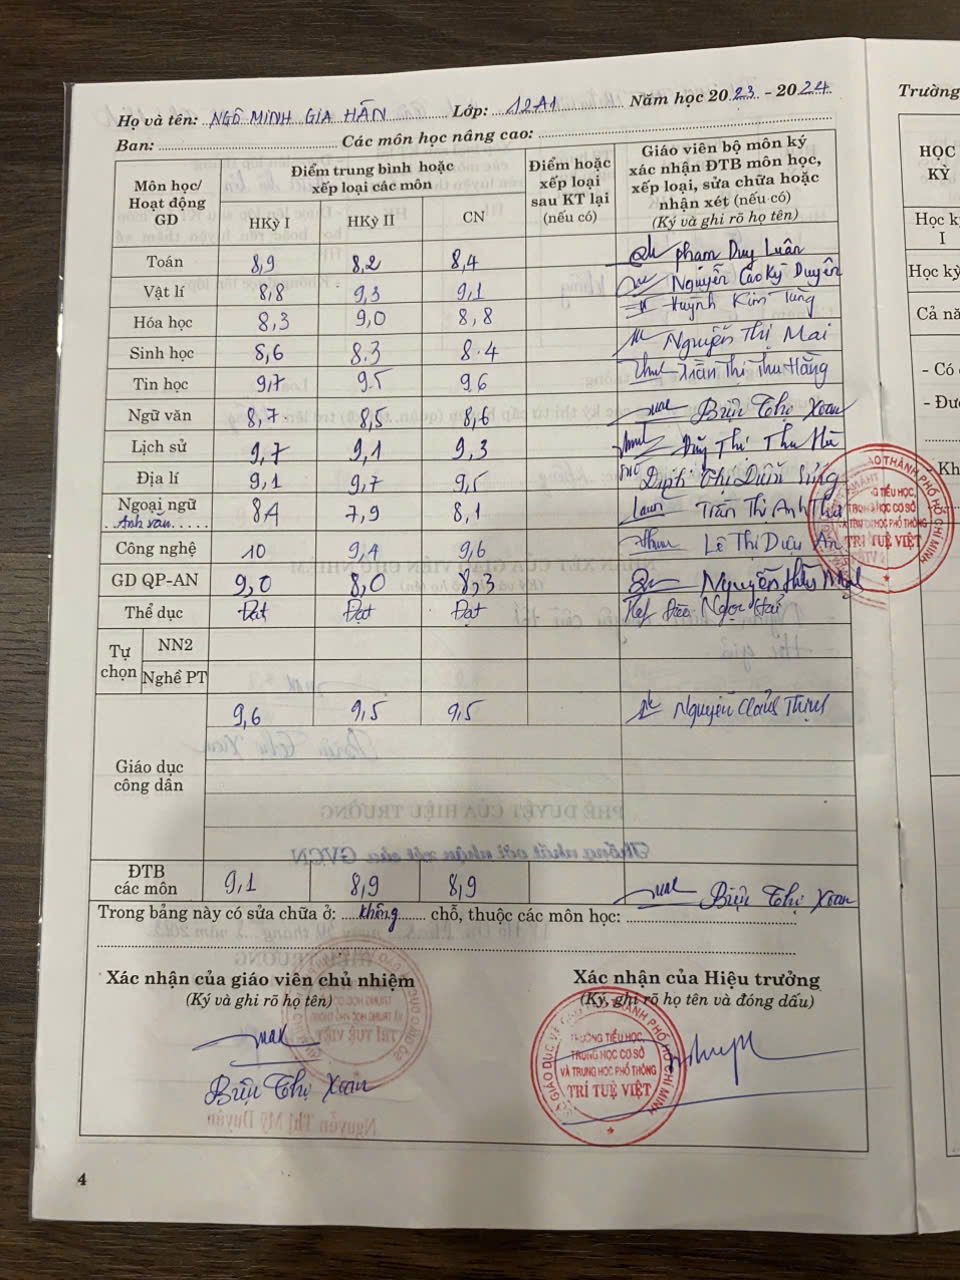 Họ và tên: NGÔ MINH GIA HÂN Lớp: 12A1 Năm học 2023 - 2024
Ban: Các môn học nâng cao:
Môn học/ Hoạt động GD
Điểm trung bình hoặc xếp loại các môn
HKỳ I HKỳ II CN
Điểm hoặc xếp loại sau KT lại (nếu có)
Giáo viên bộ môn ký xác nhận ĐTB môn học, xếp loại, sửa chữa hoặc nhận xét (nếu có)
(Ký và ghi rõ họ tên)
Toán 8,9 8,2 8,4 Phạm Duy Luân
Vật lí 8,8 9,3 9,1 Nguyễn Cao Kỳ Duyên
Hóa học 8,3 9,0 8,8 Huỳnh Kim Tùng
Sinh học 8,6 8.3 8.4 Nguyễn Thị Mai
Tin học 9,7 9.5 9.6 Trần Thị Thu Hằng
Ngữ văn 8,7 8,5 8,6 Biện Thị Xoan
Lịch sử 9,7 9,1 9,3 Thị Thu Hà
Địa lí 9,1 9,7 9,5 Thị Diễm
Ngoại ngữ 8,1 7,9 8,1 Trần Thị Anh Thư
Anh văn
Công nghệ 10 9,4 9,6 Lê Thị Diệu An
GD QP-AN 9,0 8,0 8,3 Nguyễn Hữu
Thể dục Đạt Đạt Đạt Đào Ngọc Hải
Tự chọn NN2
Nghề PT
9,6 9,5 9,5 Nguyễn
Giáo dục công dân
ĐTB các môn 9,1 8,9 8,9 Biện Thị Xoan
Trong bảng này có sửa chữa ở: không chỗ, thuộc các môn học:
Xác nhận của giáo viên chủ nhiệm
(Ký và ghi rõ họ tên)
Biện Thị Xoan
Xác nhận của Hiệu trưởng
(Ký, ghi rõ họ tên và đóng dấu)
TRƯỜNG TIỂU HỌC,
TRUNG HỌC CƠ SỞ
VÀ TRUNG HỌC PHỔ THÔNG
TRÍ TUỆ VIỆT
4
Trường
HỌC KỲ
Học k
I
Học kỳ
Cả nă
- Có
- Đượ
- Kh
TRÍ TUỆ VIỆT